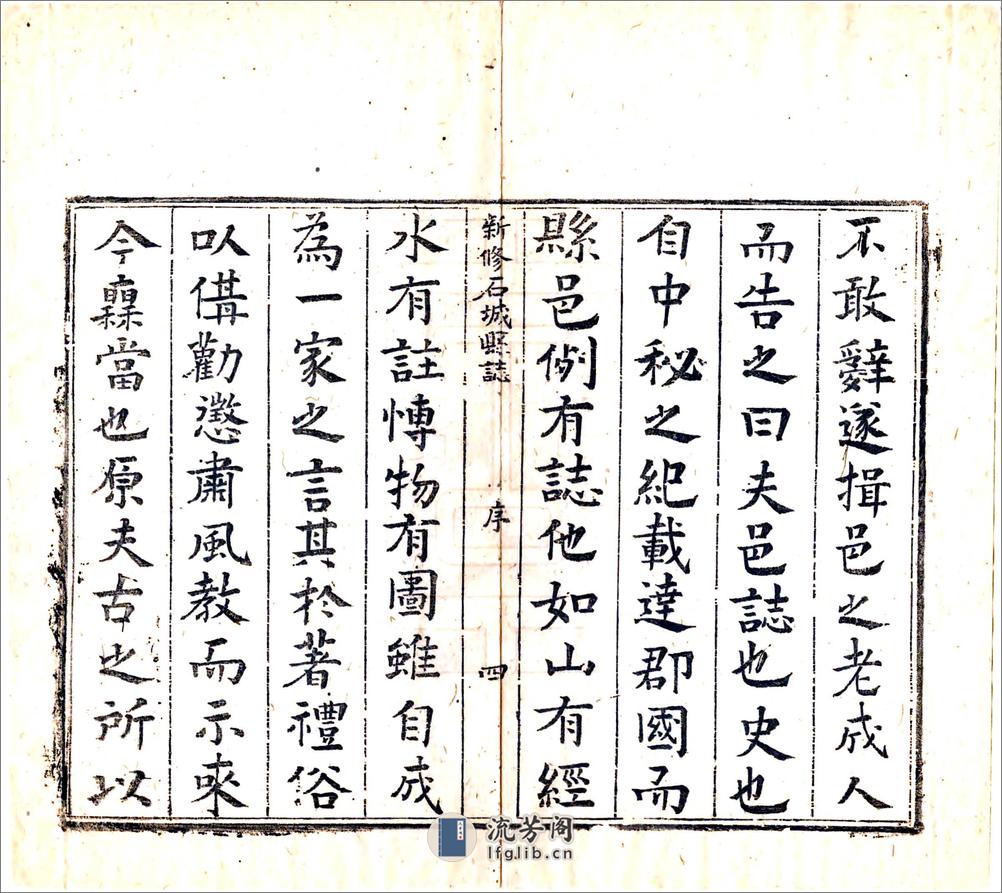 不敢辭遂揖邑之老成人
而告之曰夫邑誌也史也
自中秘之紀載達郡國而
縣邑例有誌他如山有經
新修石城縣誌
序
四
水有註博物有圖雖自成
為一家之言其於著禮俗
以備勸懲肅風教而示來
今槩當也原夫古之所以
流芳阁
lfglib.cn